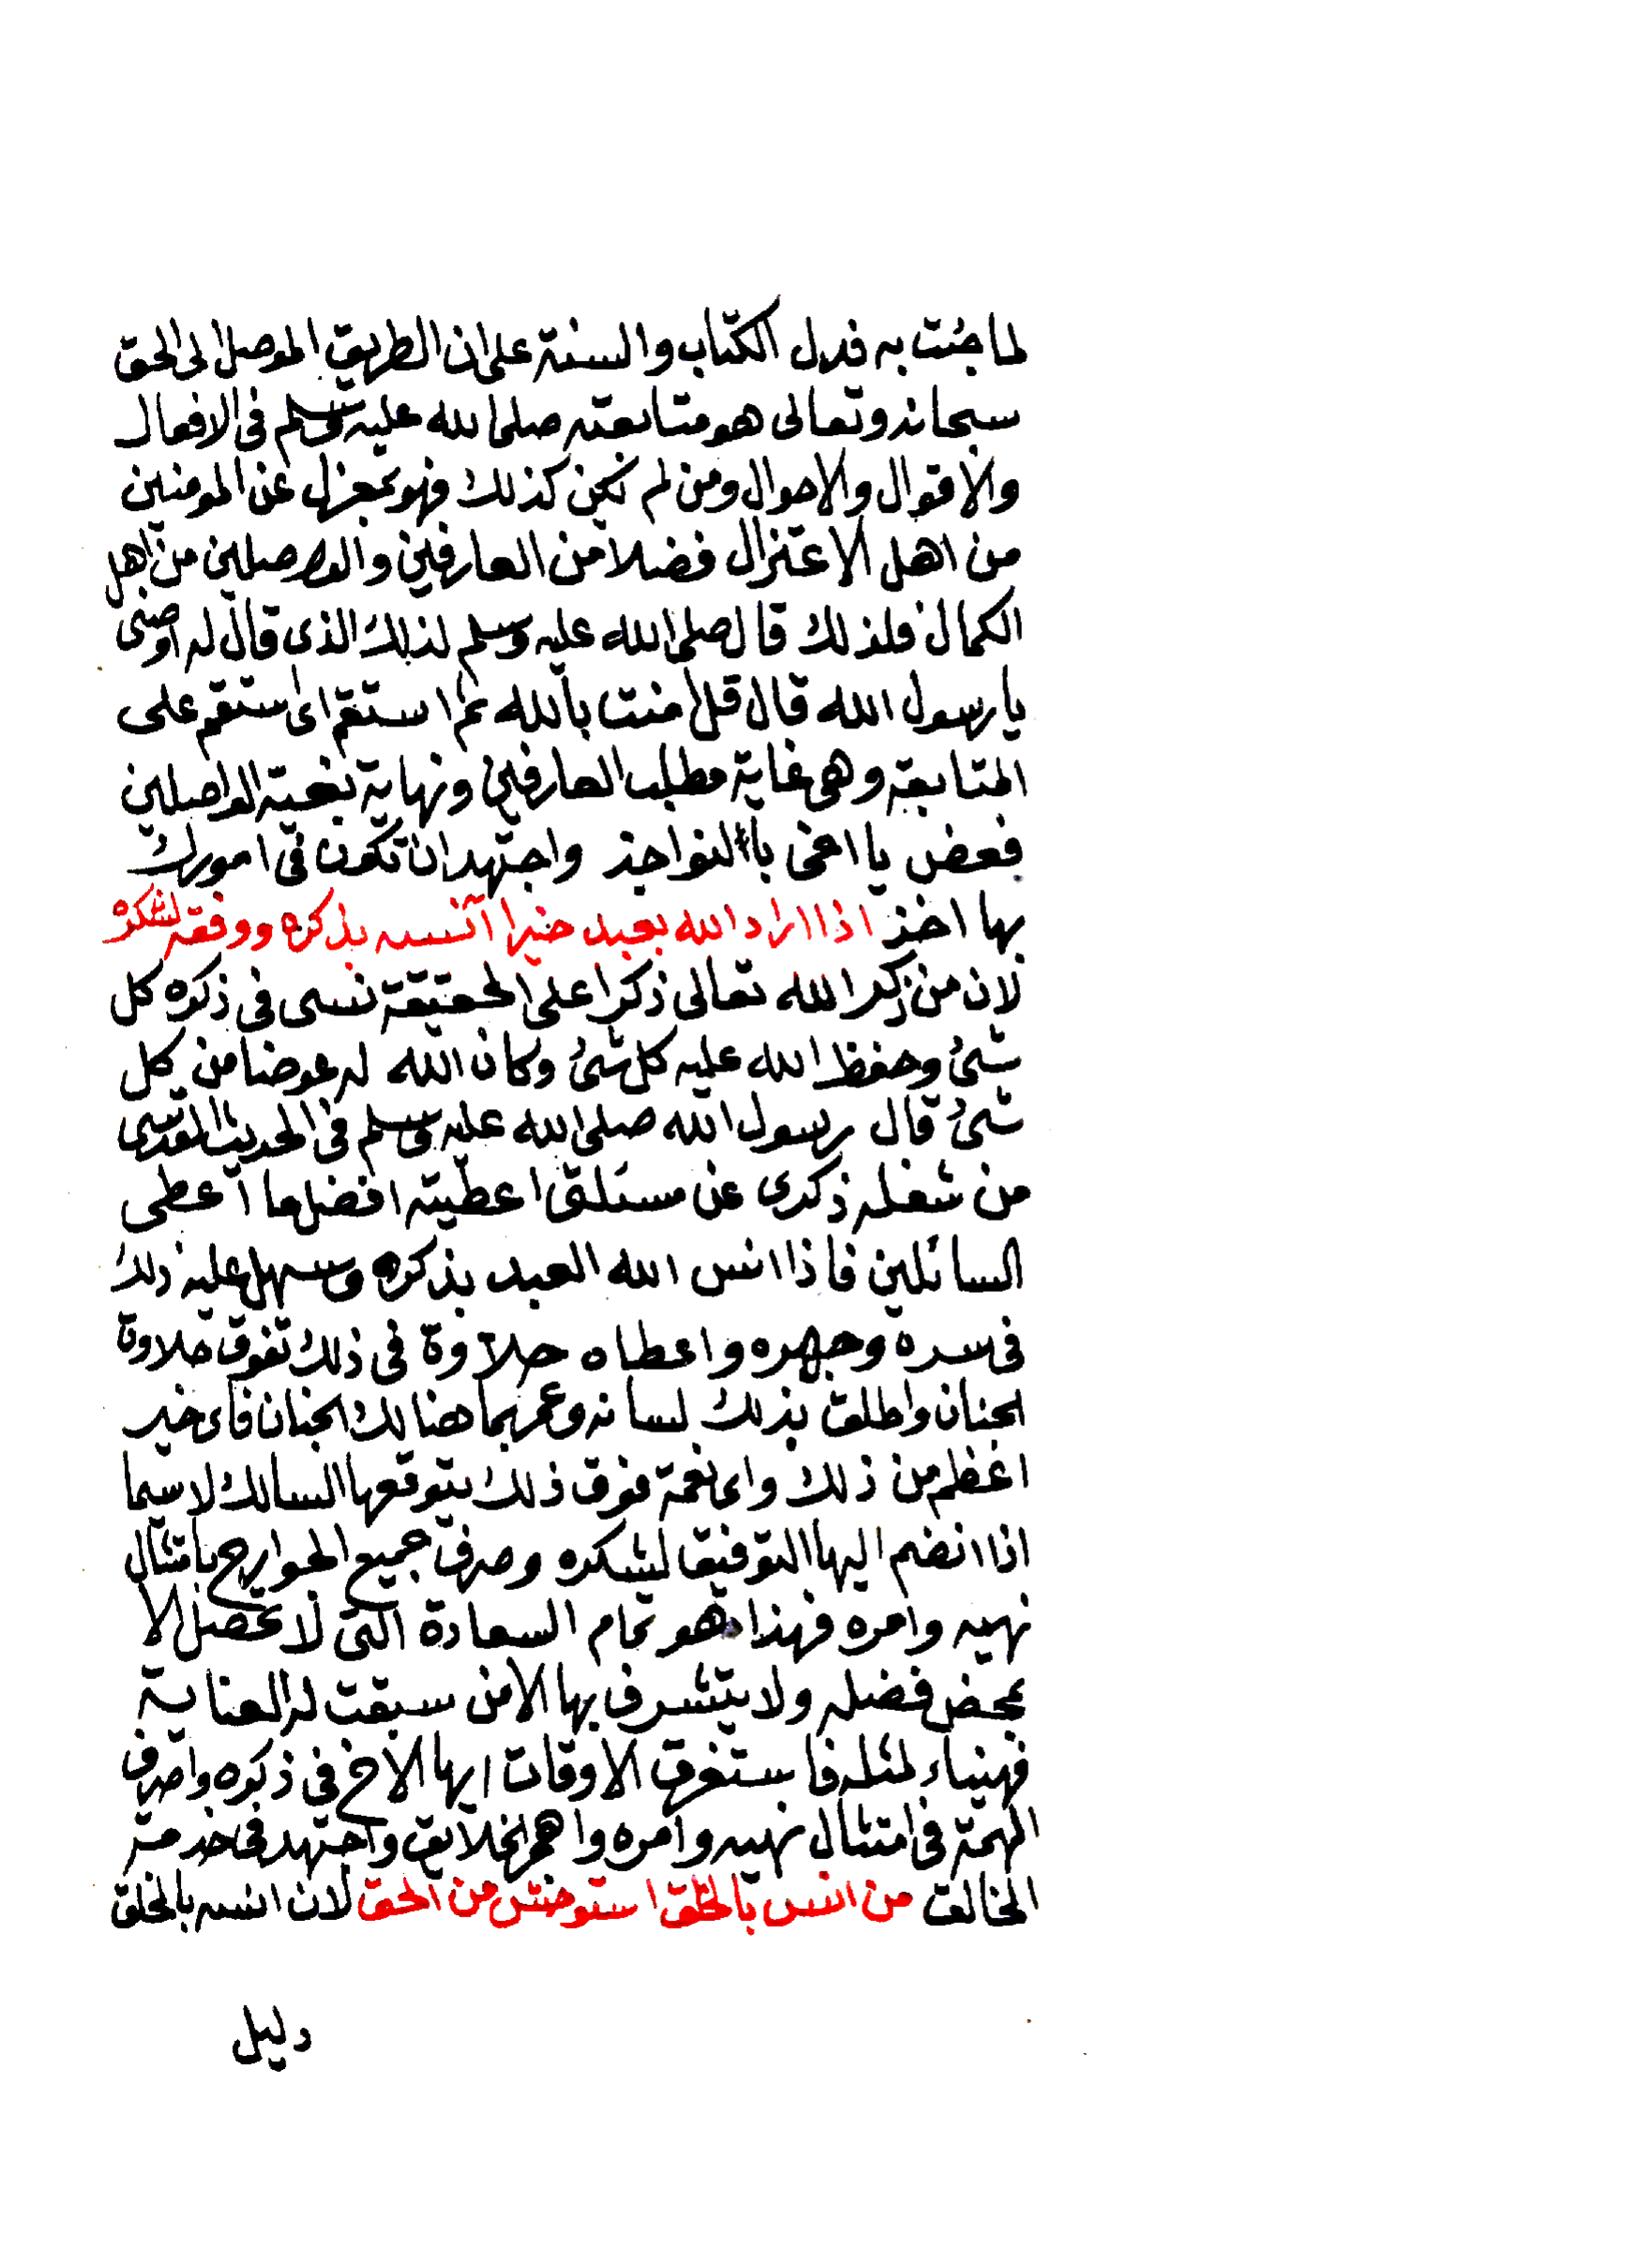 لما جئت به فدل الكتاب والسنة على ان الطريق الموصل الى الحق
سبحانه وتعالى هو متابعته صلى الله عليه وسلم فى الافعال
والاقوال والاحوال ومن لم يكن كذلك فهو بمعزل عن المومنين
من اهل الاعتزال فضلا من العارفين والواصلين من اهل
الكمال فلذلك قال صلى الله عليه وسلم لذلك الذى قال له اوصنى
يا رسول الله قال قل امنت بالله ثم استقم اى استقم على
المتابعة وهى غاية مطلب العارفين ونهاية بغية الواصلين
فعض يا اخى باالنواجذ واجتهد ان تكون فى امورك
بها اخذ اذا اراد الله بعبد خيرا آنسه بذكره ووفقه لشكره
لان من ذكر الله تعالى ذكرا على الحقيقة ننسى فى ذكره كل
شئ وحفظ الله عليه كل شئ وكان الله له عوضا من كل
شئ قال رسول الله صلى الله عليه وسلم فى الحديث القدسى
من شغله ذكرى عن مسئلتى اعطيته افضل ما اعطى
السائلين فاذا انس الله العبد بذكره وسهل عليه ذلك
فى سره وجهره واعطاه حلاوة فى ذلك تفوق حلاوة
الجنان واطلق بذلك لسانه وعمر بما هنالك الجنان فاى خير
اعظم من ذلك واى نعمة فوق ذلك يتوقعها السالك لا سيما
اذا انضم اليها التوفيق لشكره وصرف جميع الجوارح بامتثال
نهيه وامره فهذا هو تمام السعادة التى لا تحصل الا
بمحض فضله ولا يتشرف بها الا من سبقت له العناية
فهنياء لمثله فاستغرق الاوقات ايها الاخ فى ذكره واصرف
الهمة فى امتثال نهيه وامره واهجر الخلايق واجتهد فى خدمة
الخالق من انس بالخلق استوحش من الحق لان انسه بالخلق
دليل